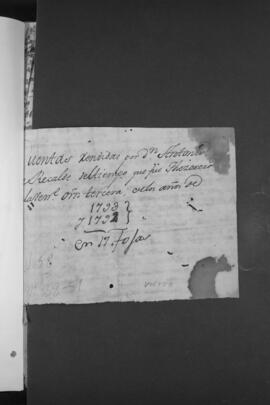 uentas Rendidas por Dn Antonio
Recalde del tiempo que fue Thesorero
la Vene. Orn tercera en los años de
1793
y 1794
en 17. Fojas